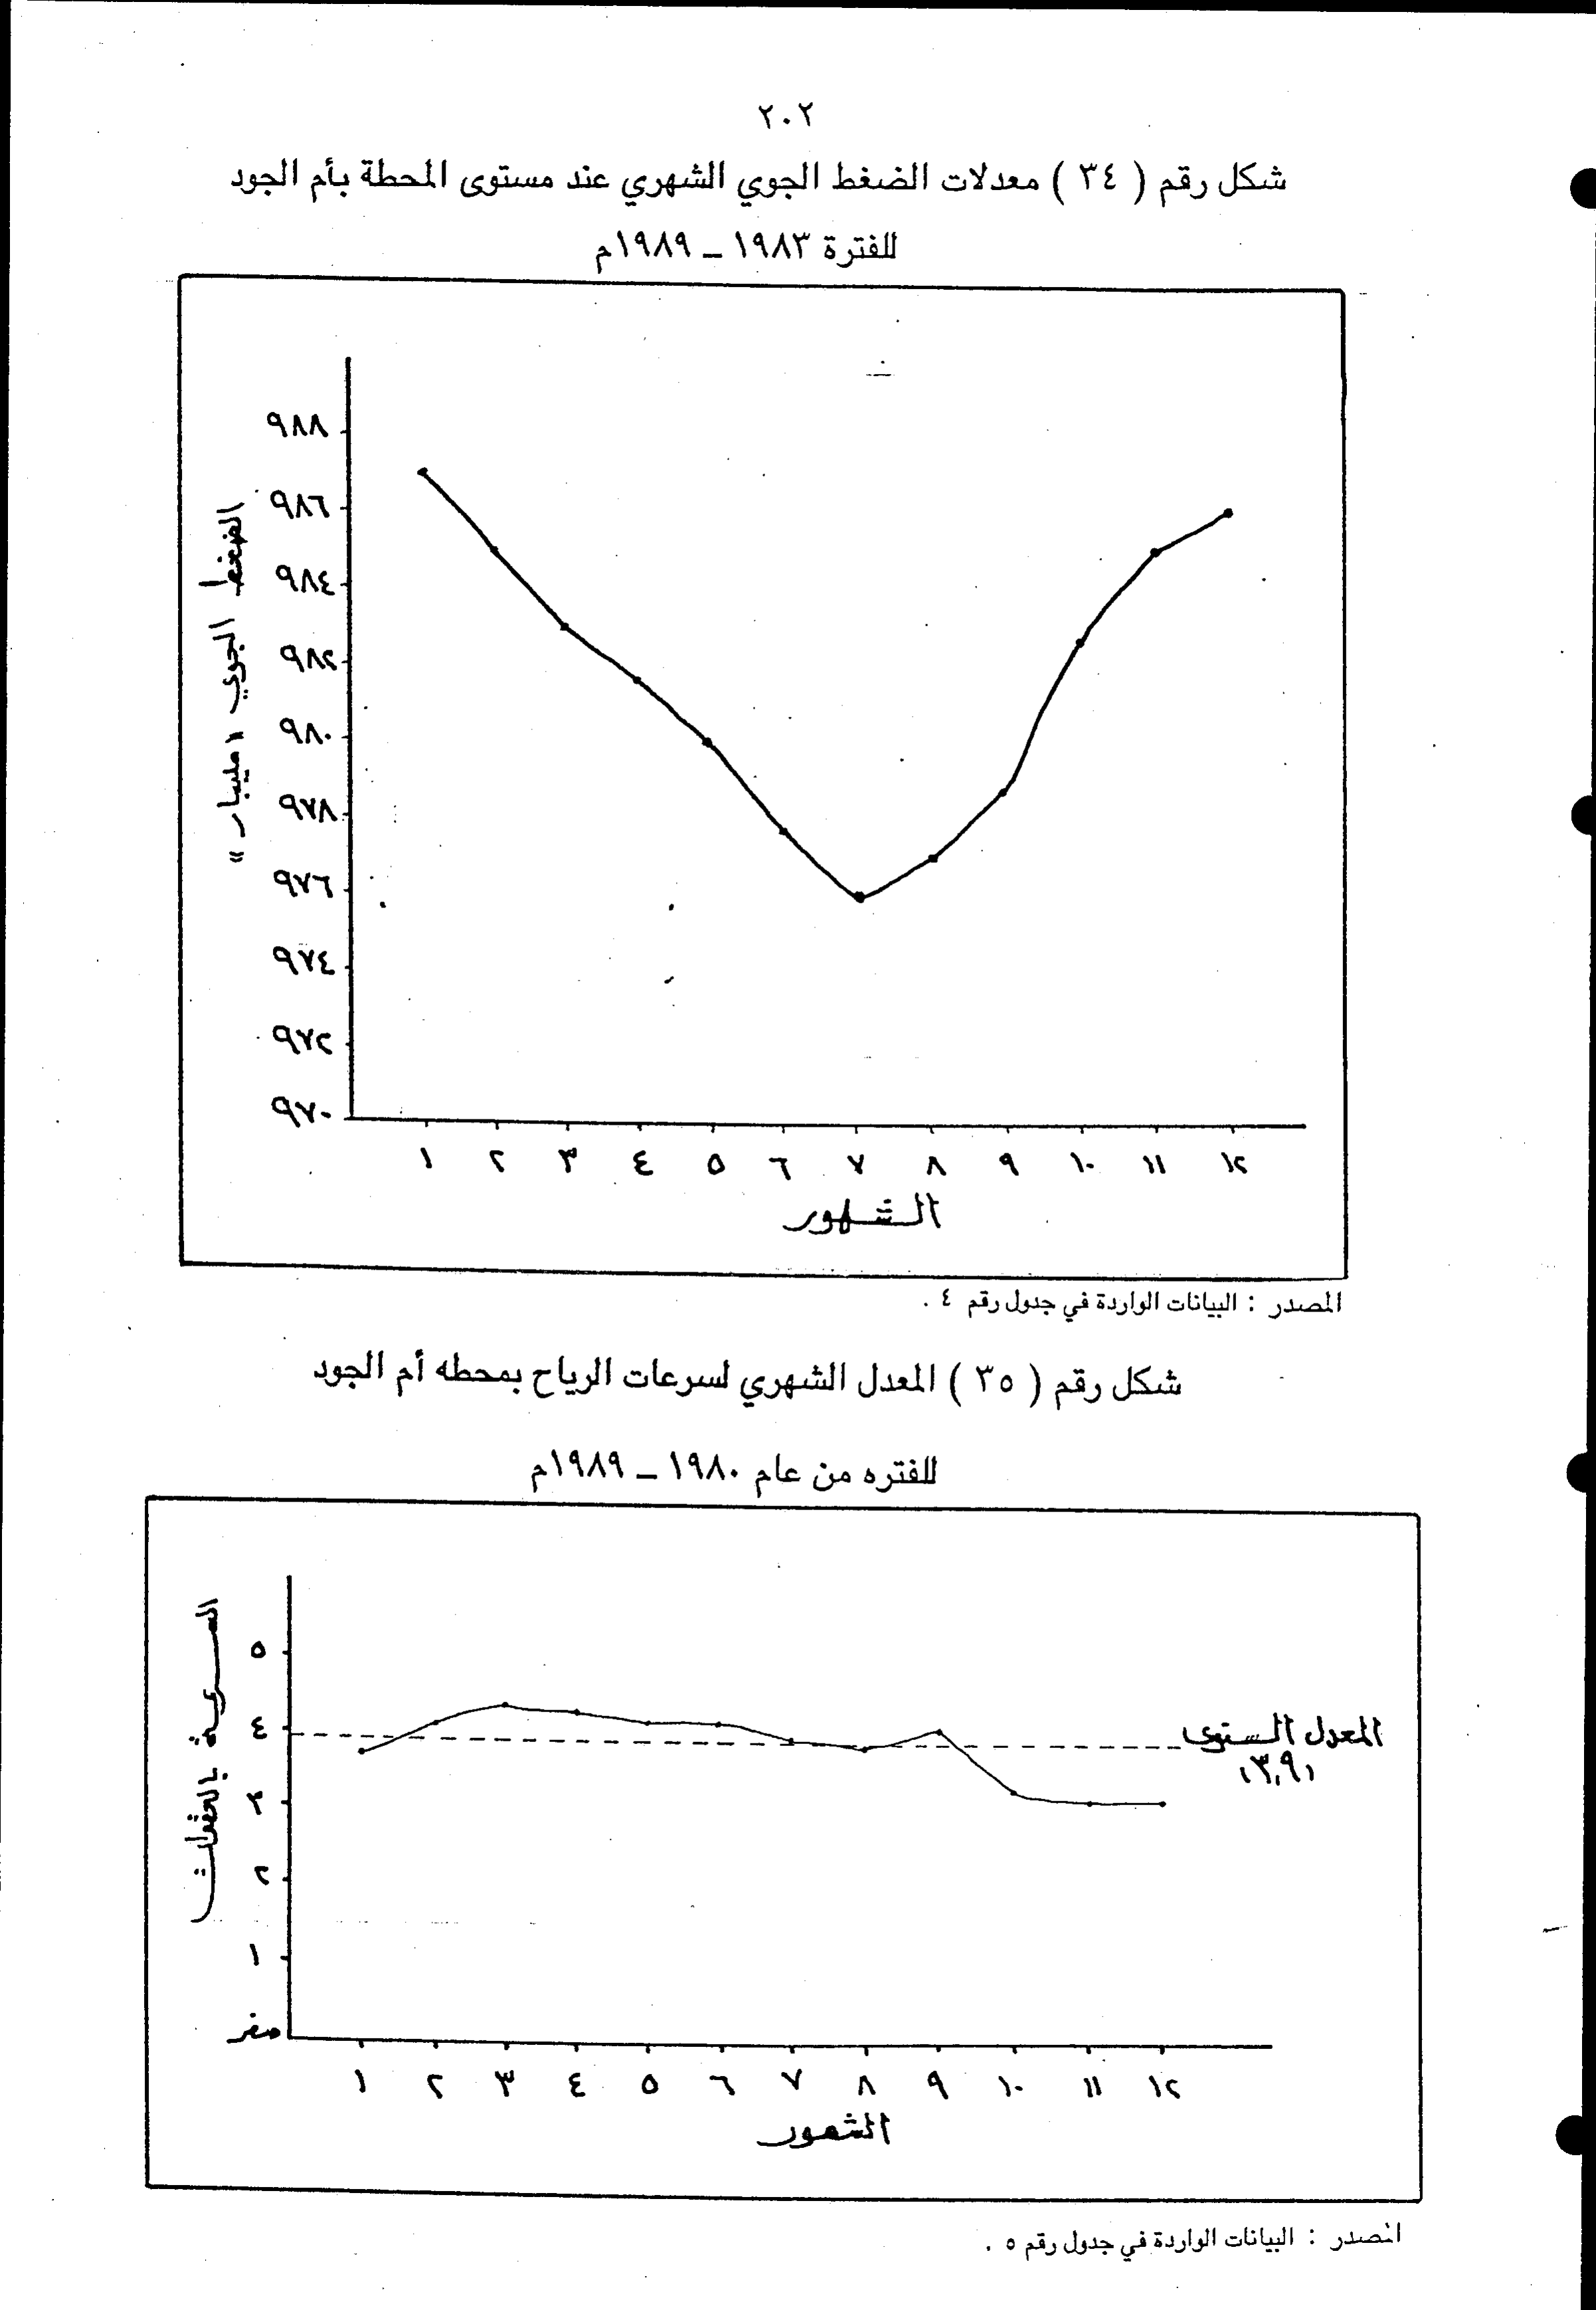 ٢٠٢
شكل رقم ( ٣٤ ) معدلات الضغط الجوي الشهري عند مستوى المحطة بأم الجود
للفترة ١٩٨٣ ــ ١٩٨٩م
٩٨٨
٩٨٦
٩٨٤
٩٨٢
٩٨٠
٩٧٨
٩٧٦
٩٧٤
٩٧٢
٩٧٠
الضغط الجوي "مليبار"
١ ٢ ٣ ٤ ٥ ٦ ٧ ٨ ٩ ١٠ ١١ ١٢
الشهور
المصدر : البيانات الواردة في جدول رقم ٤ .
شكل رقم ( ٣٥ ) المعدل الشهري لسرعات الرياح بمحطه أم الجود
للفتره من عام ١٩٨٠ ــ ١٩٨٩م
السرعة بالعقدات
٥
٤
٣
٢
١
صفر
المعدل السنوى
(٣,٩)
١ ٢ ٣ ٤ ٥ ٦ ٧ ٨ ٩ ١٠ ١١ ١٢
الشهور
المصدر : البيانات الواردة في جدول رقم ٥ .